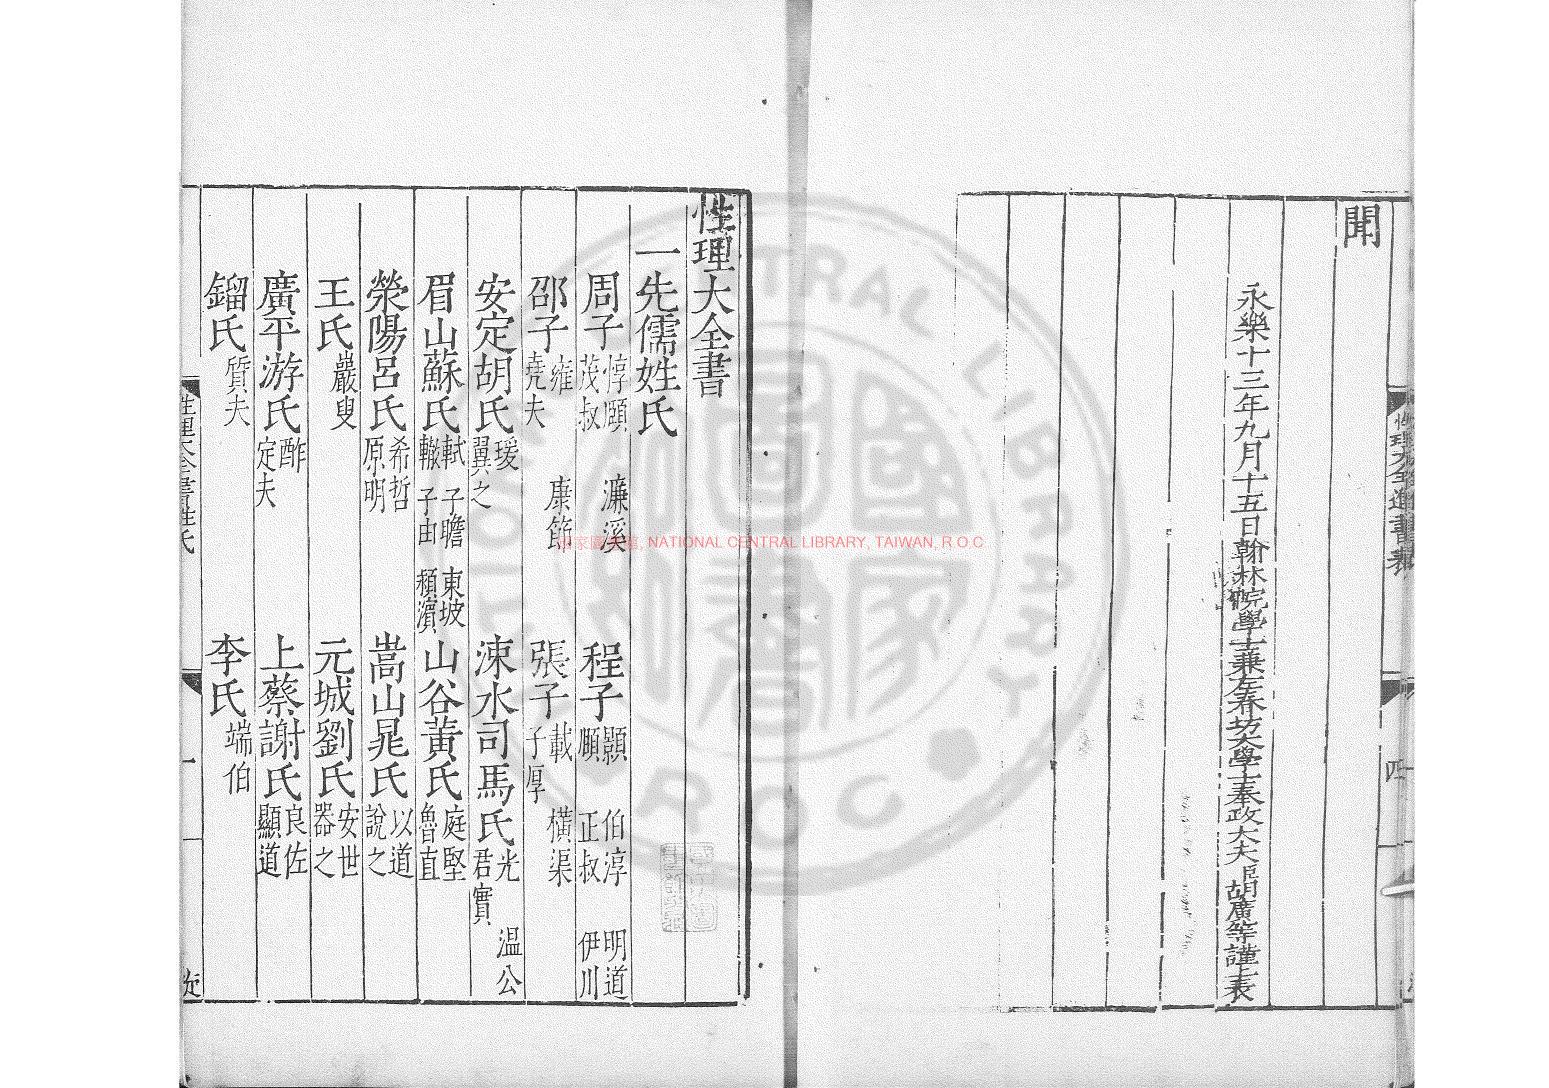 聞
永樂十三年九月十五日翰林院學士兼左春坊大學士奉政大夫臣胡廣等謹上表
性理大全進書表
四
性理大全書
一先儒姓氏
周子 惇頤 茂叔 濂溪 程子 顥 伯淳 明道 頤 正叔 伊川
邵子 雍 堯夫 康節 張子 載 子厚 橫渠
安定胡氏 瑗 翼之 涑水司馬氏 光 君實 温公
眉山蘇氏 軾 子瞻 東坡 轍 子由 潁濵 山谷黃氏 庭堅 魯直
滎陽呂氏 希哲 原明 嵩山晁氏 以道 說之
王氏 巖叟 元城劉氏 安世 器之
廣平游氏 酢 定夫 上蔡謝氏 良佐 顯道
鎦氏 質夫 李氏 端伯
性理大全書姓氏
一
國家圖書館, NATIONAL CENTRAL LIBRARY, TAIWAN, R.O.C